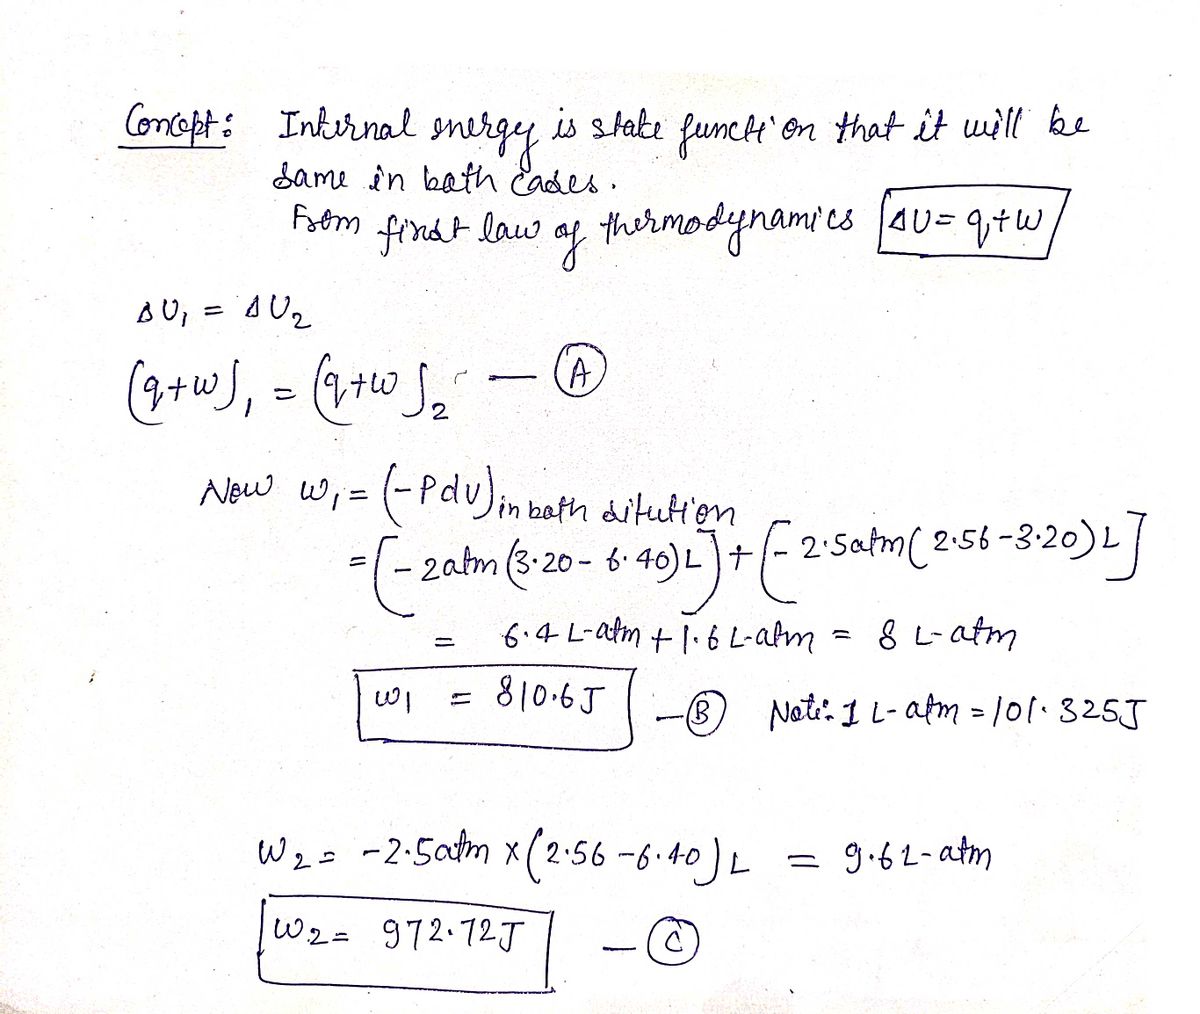 Concept: Internal energy is state function that it will be
same in both cases.
From first law of thermodynamics ΔU = q+w
ΔU₁ = ΔU₂
(q+w)₁ = (q+w)₂ — Ⓐ
Now w₁ = (-Pdv) in both ditution
= [-2atm (3.20 - 6.40)L] + [-2.5atm (2.56-3.20)L]
= 6.4 L-atm + 1.6 L-atm = 8 L-atm
w1 = 810.6J — Ⓑ Note: 1 L-atm = 101.325J
W2 = -2.5atm x (2.56-6.40)L = 9.6L-atm
W2 = 972.72J — Ⓒ